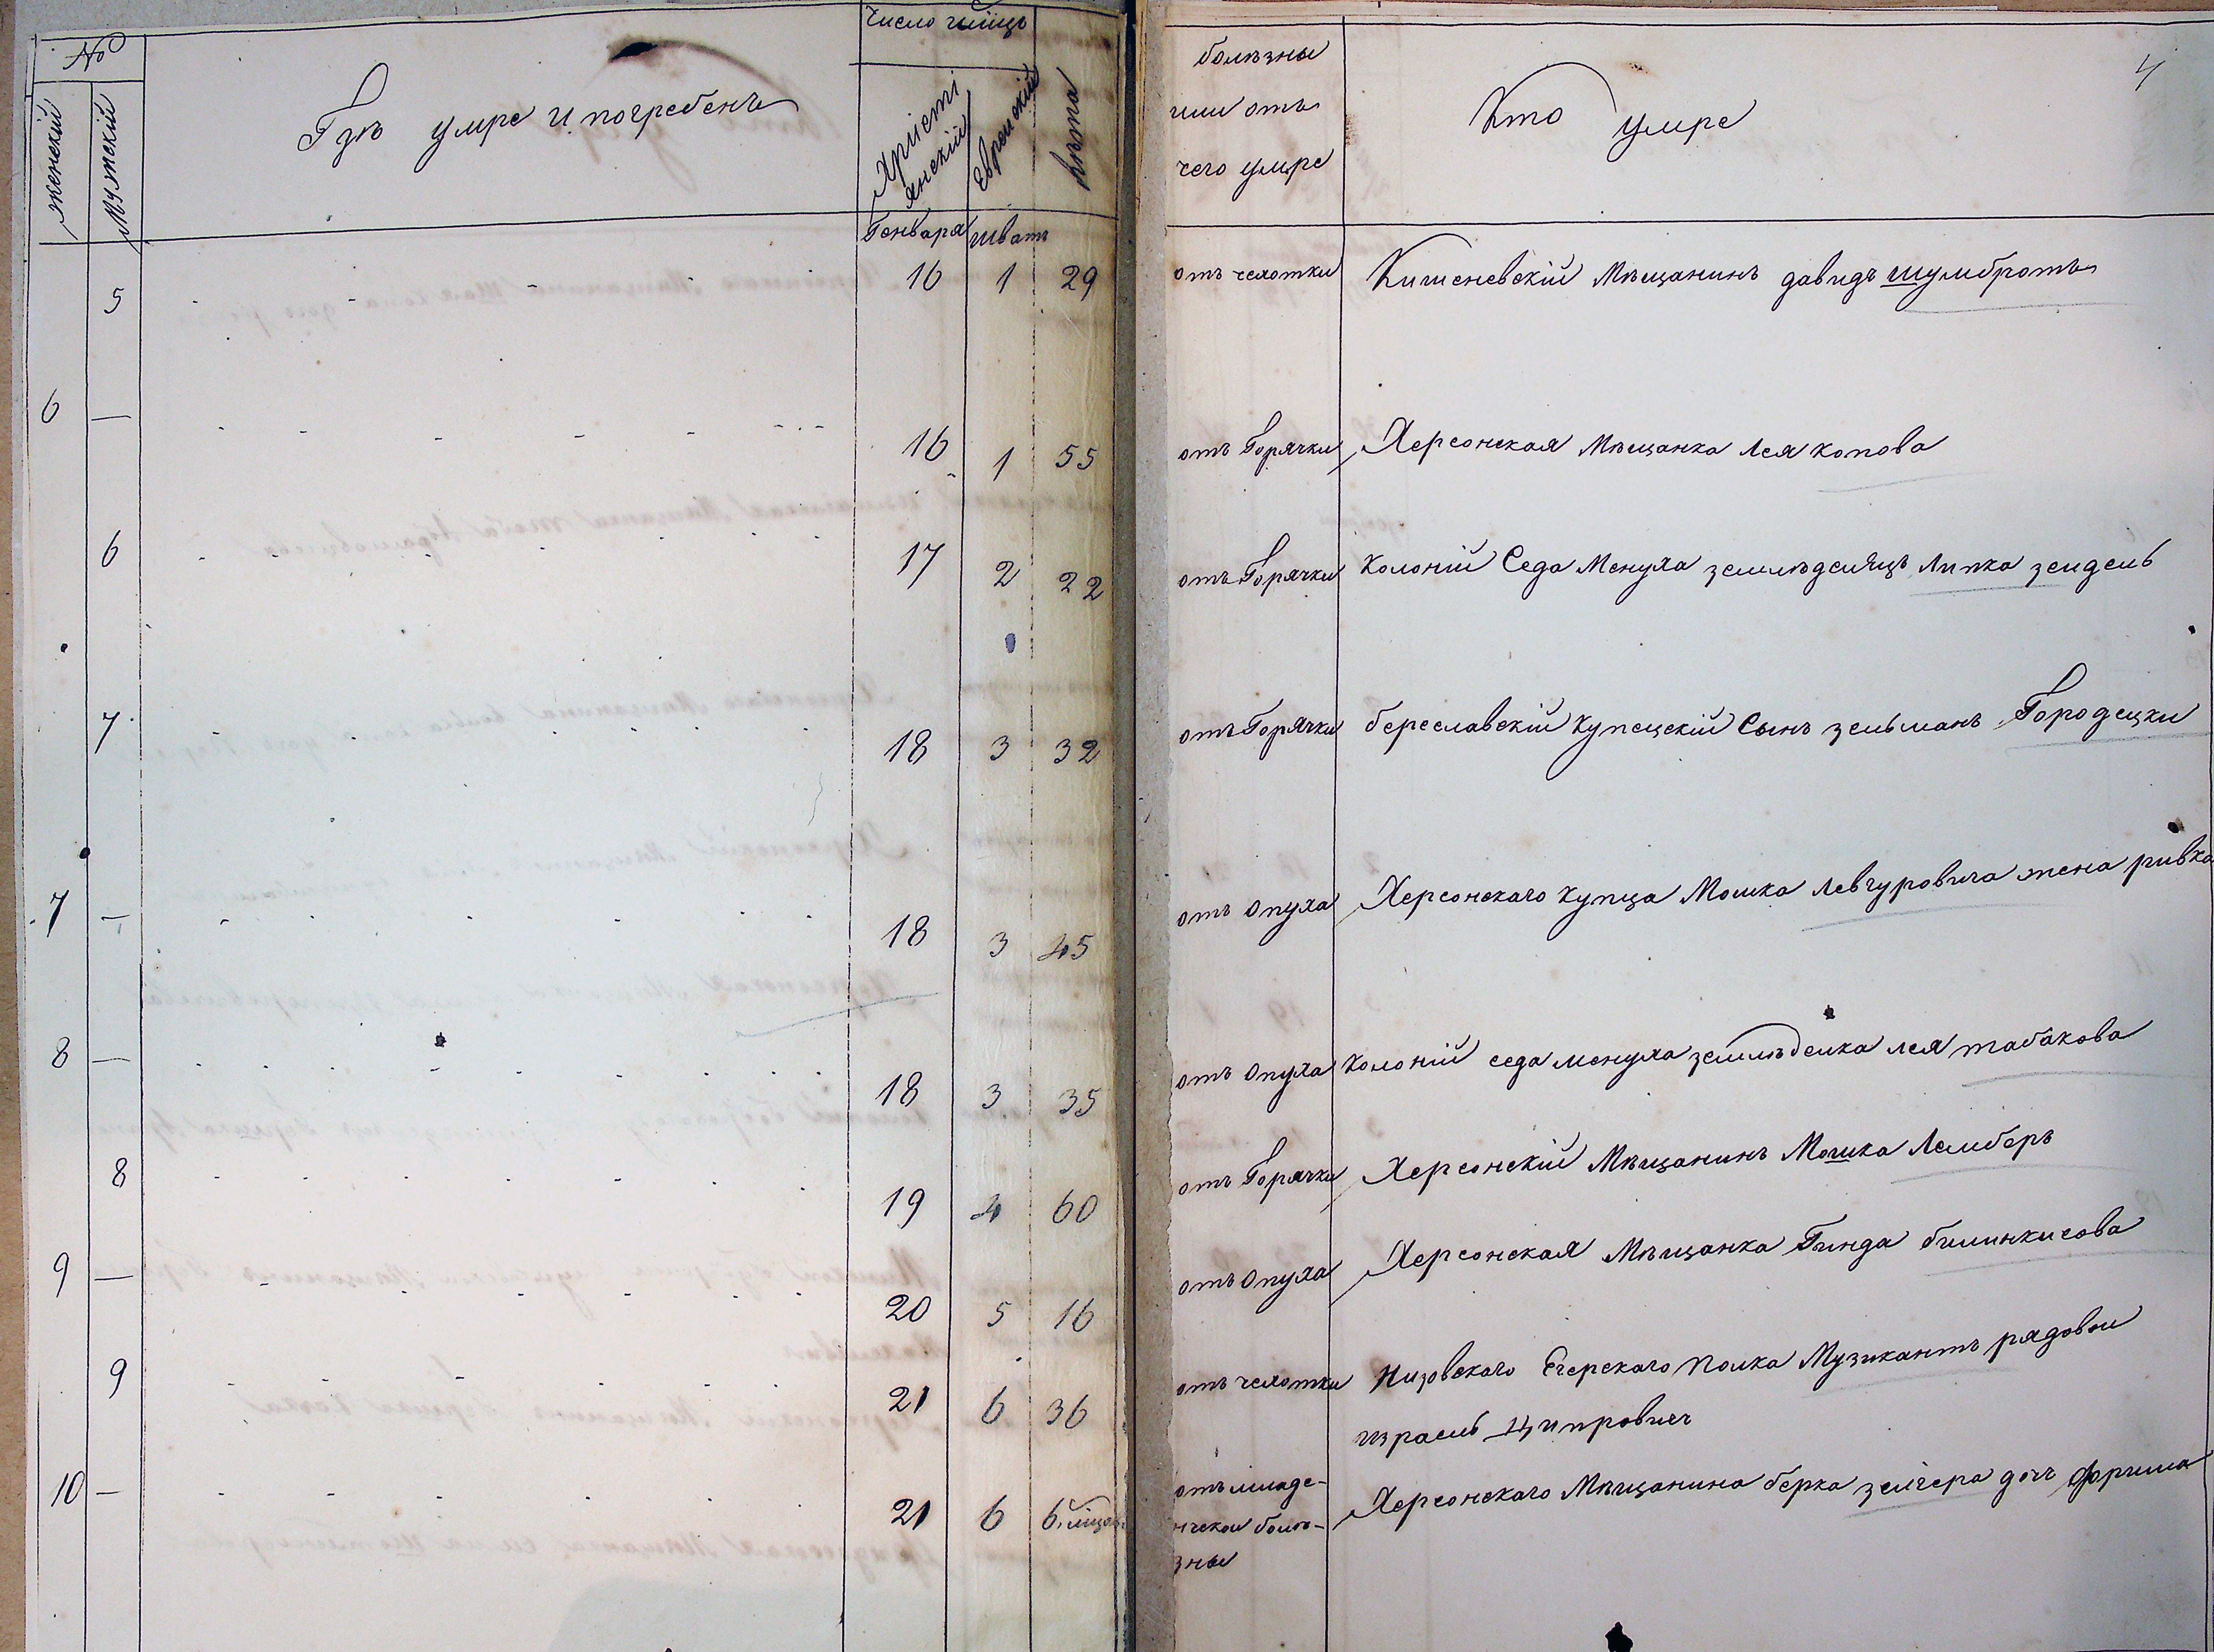 №
женский
Мужский
Гдѣ умре и погребенъ
Число чипцъ
Хрїсті
янскїй
Еврейскїй
Лѣта
Генваря шватъ
болѣзны
или отъ
чего умре
Кто умре
4
5 16 1 29 отъ чехотки Кишеневскїй Мѣщанинъ давидъ шумбротъ
6 — 16 1 55 отъ Горячки Херсонская Мѣщанка Лея копова
6 17 2 22 отъ Горячки Колонїй Седа Менуха землѣделецъ Липка зейдель
7 18 3 32 отъ Горячки береславскїй купецскїй Сынъ зельманъ Городецки
7 — 18 3 45 отъ опуха Херсонскаго купца Мошка Левчуровича жена ривка
8 — 18 3 35 отъ опуха Колонїй седа менуха землѣделка лея табакова
8 19 4 60 отъ Горячки Херсонскїй Мѣщанинъ Мошка Лемберъ
9 — 20 5 16 отъ опуха Херсонская Мѣщанка Гинда билинкисова
9 21 6 36 отъ чехотки Низовского Егерскаго полка Музикантъ рядовои
израель Ципрович
10 — 21 6 отъ младе- Херсонскаго Мѣщанина берка зелчера доч фрима
нческои болѣ-
зны